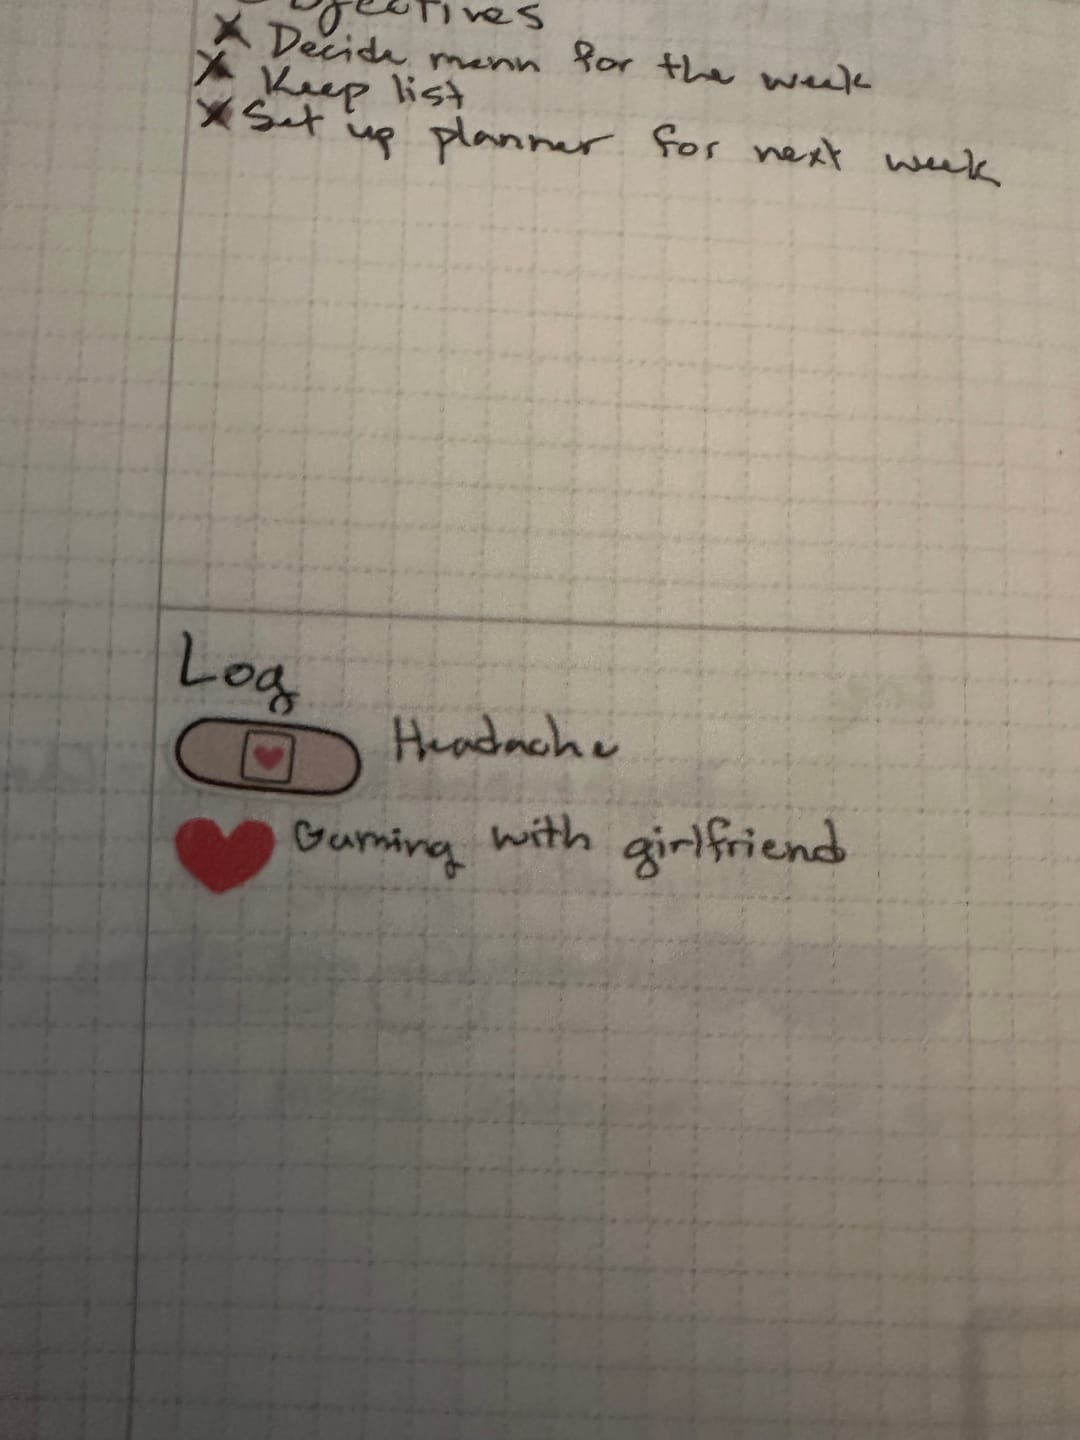 Objectives
Decide menu for the week
Keep list
Set up planner for next week
Log
Headache
Gaming with girlfriend